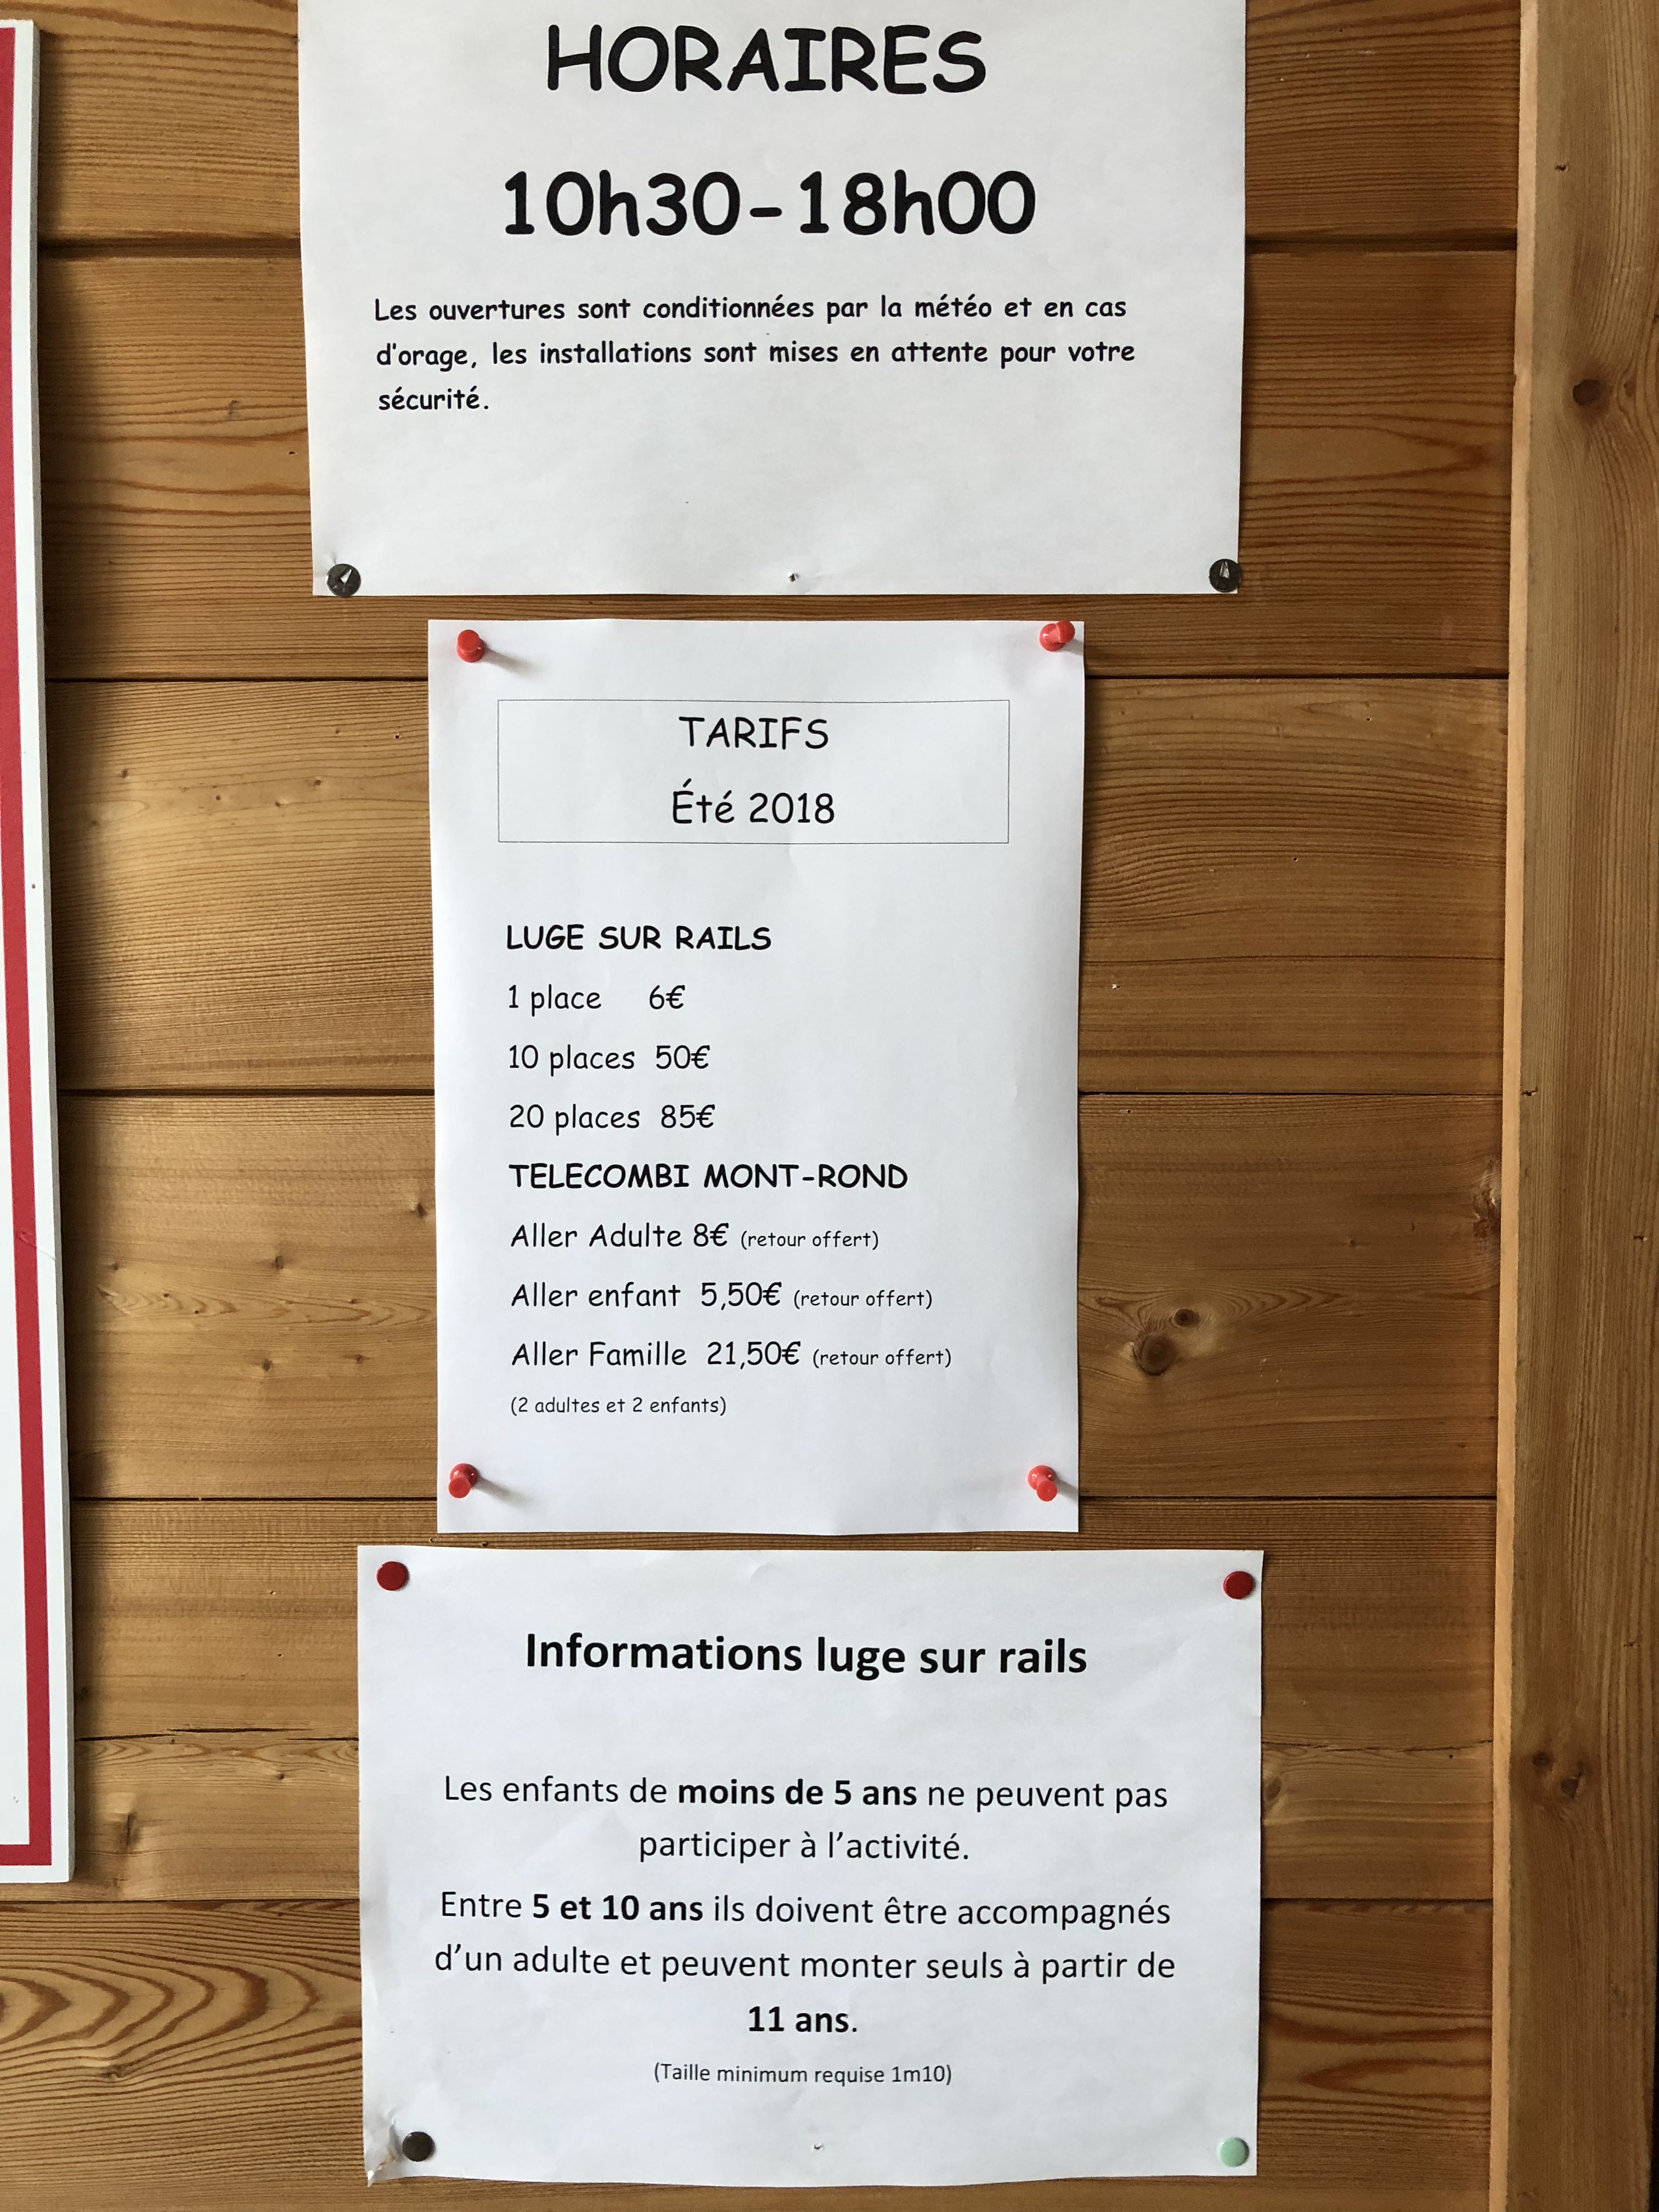 HORAIRES
10h30-18h00
Les ouvertures sont conditionnées par la météo et en cas
d'orage, les installations sont mises en attente pour votre
sécurité.
TARIFS
Été 2018
LUGE SUR RAILS
1 place 6€
10 places 50€
20 places 85€
TELECOMBI MONT-ROND
Aller Adulte 8€ (retour offert)
Aller enfant 5,50€ (retour offert)
Aller Famille 21,50€ (retour offert)
(2 adultes et 2 enfants)
Informations luge sur rails
Les enfants de moins de 5 ans ne peuvent pas
participer à l’activité.
Entre 5 et 10 ans ils doivent être accompagnés
d’un adulte et peuvent monter seuls à partir de
11 ans.
(Taille minimum requise 1m10)